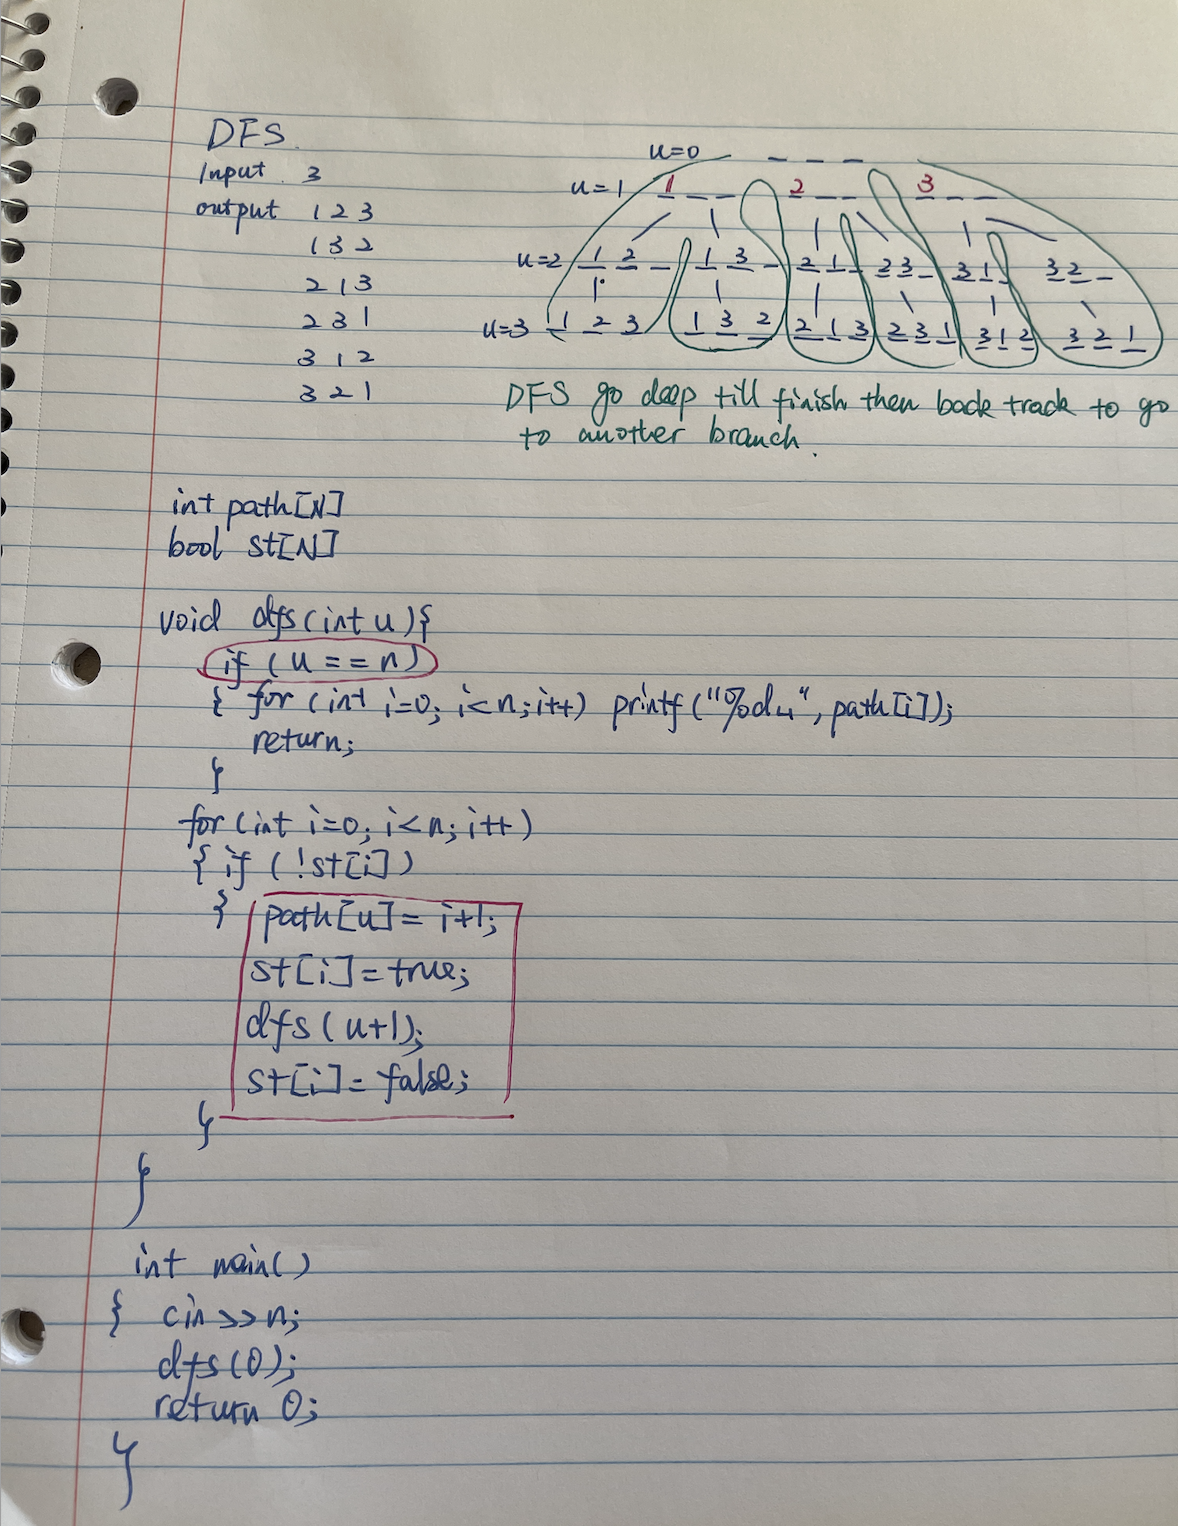 DFS.
Input 3
output 1 2 3
1 3 2
2 1 3
2 3 1
3 1 2
3 2 1
u=0 _ _ _
u=1 1 _ _ 2 _ _ 3 _ _
u=2 1 2 _ 1 3 _ 2 1 _ 2 3 _ 3 1 _ 3 2 _
u=3 1 2 3 1 3 2 2 1 3 2 3 1 3 1 2 3 2 1
DFS go deep till finish then back track to go
to another branch.
int path[N]
bool st[N]
void dfs(int u){
if (u == n)
{ for (int i=0; i<n; i++) printf("%d␣", path[i]);
return;
}
for (int i=0; i<n; i++)
{ if (!st[i])
} path[u] = i+1;
st[i] = true;
dfs(u+1);
st[i] = false;
}
}
int main()
{ cin >> n;
dfs(0);
return 0;
}